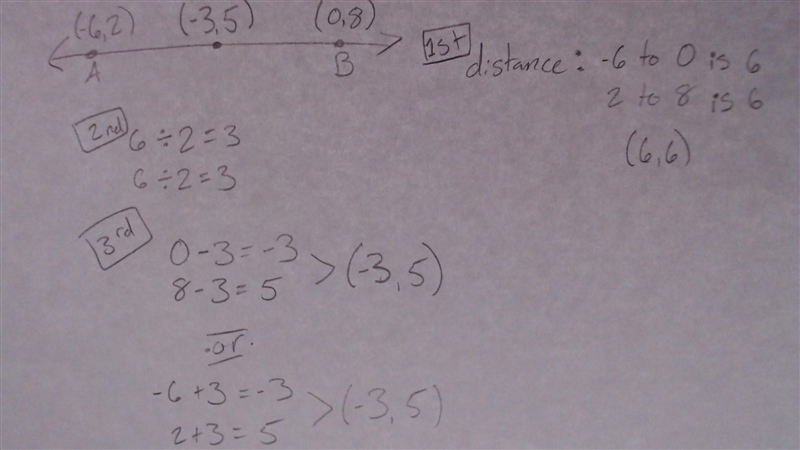 (-6,2) (-3,5) (0,8)
A B
1st distance: -6 to 0 is 6
2 to 8 is 6
(6,6)
2nd 6 ÷ 2 = 3
6 ÷ 2 = 3
3rd
0 - 3 = -3
8 - 3 = 5 > (-3,5)
·or·
-6 + 3 = -3
2 + 3 = 5 > (-3,5)